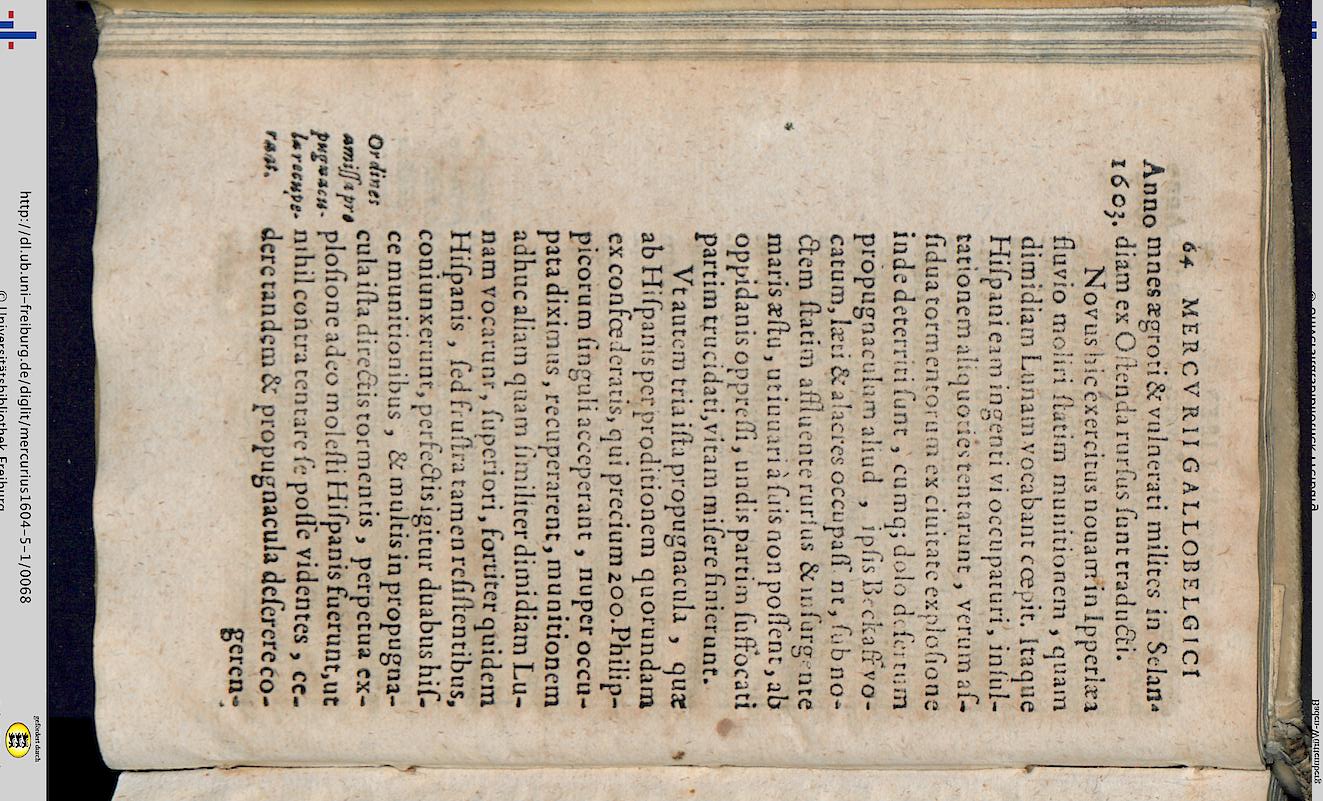 64 MERCVRII GALLOBELGICI
Anno
1603.
mnes ægroti & vulnerati milites in Selan-
diam ex Oſtenda rurſus ſunt traducti.
Novus hic exercitus nouam in Ipperlæa
fluvio moliri ſtatim munitionem, quam
dimidiam Lunam vocabant cœpit. Itaque
Hiſpani eam ingenti vi occupaturi, inſul-
tationem aliquoties tentarunt, verum aſ-
ſidua tormentorum ex ciuitate exploſione
inde deterriti ſunt, cumq; dolo deſertum
propugnaculum aliud, ipſis Beckaff vo-
catum, læti & alacres occupaſſent, ſub no-
ctem ſtatim affluente rurſus & inſurgente
maris æſtu, ut iuuari à ſuis non poſſent, ab
oppidanis oppreſſi, undis partim ſuffocati
partim trucidati, vitam miſere finierunt.
Vt autem tria iſta propugnacula, quæ
ab Hiſpanis per proditionem quorundam
ex confœderatis, qui precium 200. Philip-
picorum ſinguli acceperant, nuper occu-
pata diximus, recuperarent, munitionem
adhuc aliam quam ſimiliter dimidiam Lu-
nam vocarunt, ſuperiori, fortiter quidem
Hiſpanis, ſed fruſtra tamen reſiſtentibus,
coniunxerunt, perfectis igitur duabus hiſ-
ce munitionibus, & multis in propugna-
cula iſta directis tormentis, perpetua ex-
ploſione adeo moleſti Hiſpanis fuerunt, ut
nihil contra tentare ſe poſſe videntes, ce-
dere tandem & propugnacula deſerere co-
geren-
Ordines
amiſſa pro
pugnacu-
la recupe-
rant.
http://dl.ub.uni-freiburg.de/diglit/mercurius1604-5-1/0068
© Universitätsbibliothek Freiburg
gefördert durch